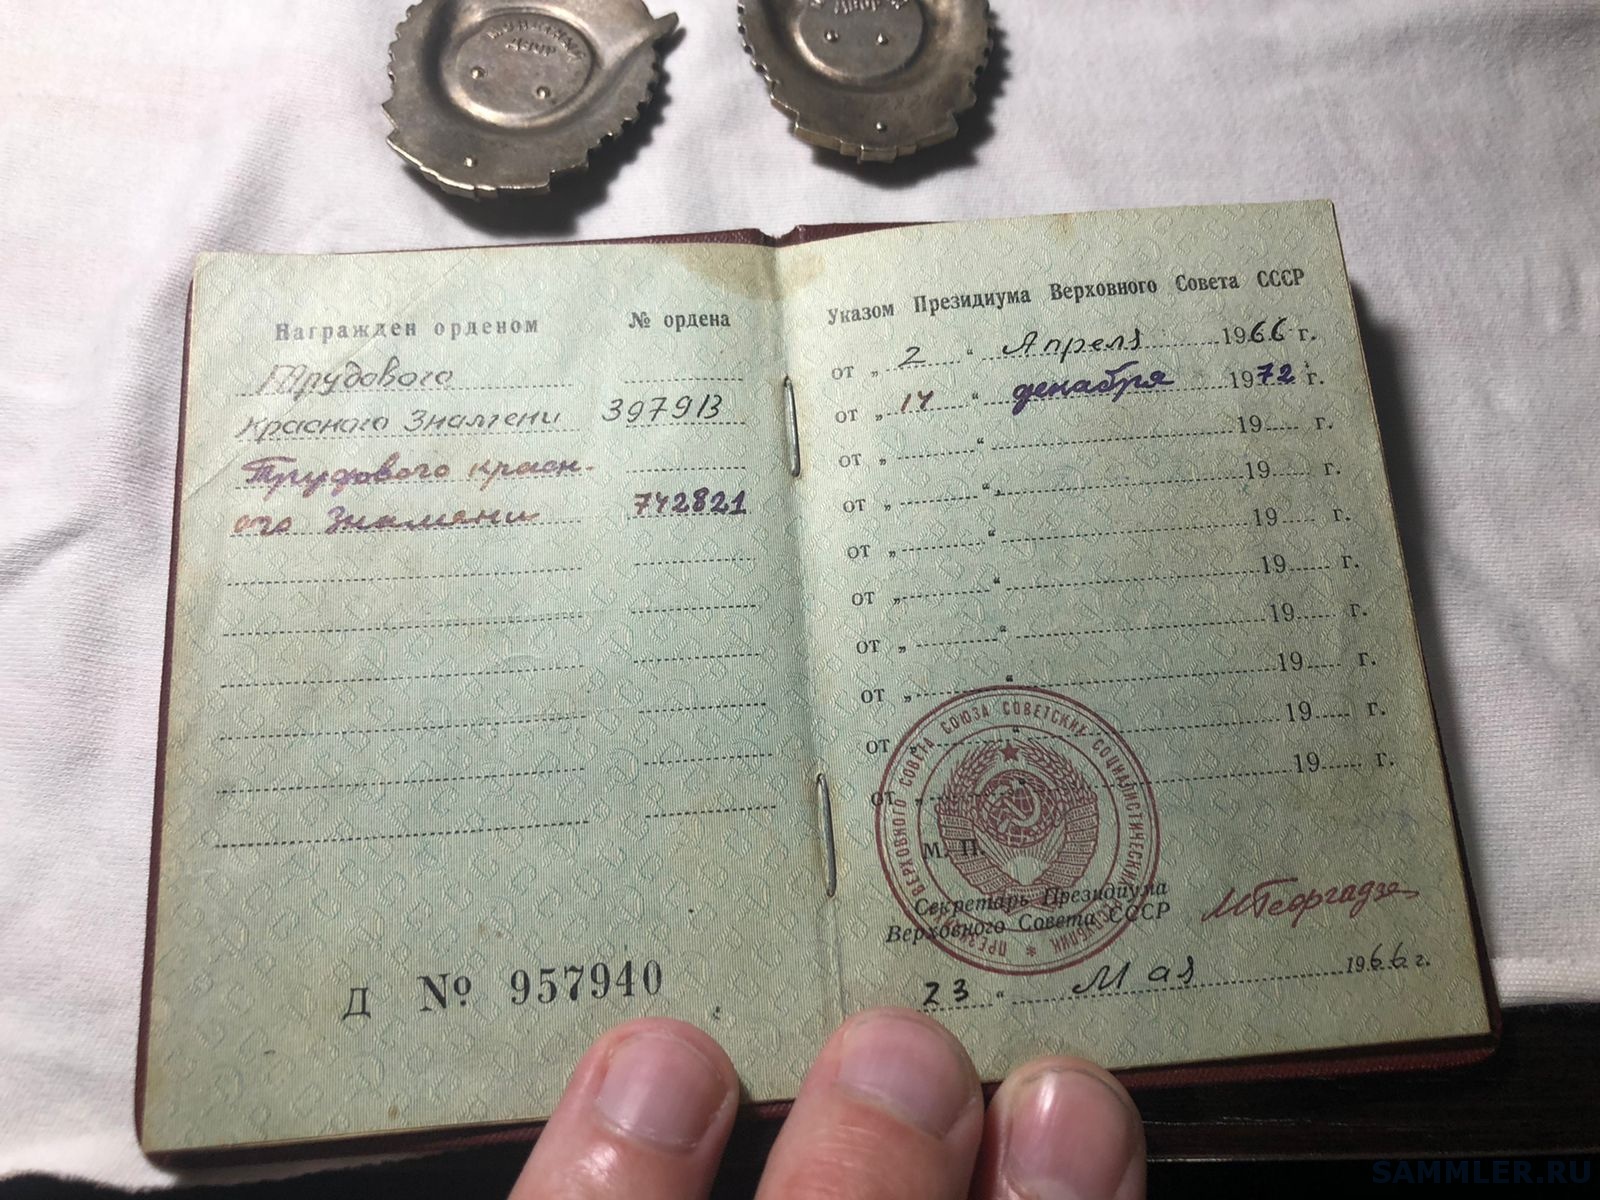 МОНЕТНЫЙ
ДВОР
ДВОР
Награжден орденом № ордена
Трудового
Красного Знамени 397913
Трудового красн-
ого Знамени 742821
Д № 957940
Указом Президиума Верховного Совета СССР
от „ 2 “ Апреля 1966 г.
от „ 14 “ декабря 1972 г.
от „ “ 19 г.
от „ “ 19 г.
от „ “ 19 г.
от „ “ 19 г.
от „ “ 19 г.
от „ “ 19 г.
от „ “ 19 г.
от „ “ 19 г.
ПРЕЗИДИУМ ВЕРХОВНОГО СОВЕТА СОЮЗА СОВЕТСКИХ СОЦИАЛИСТИЧЕСКИХ РЕСПУБЛИК *
М. П.
Секретарь Президиума
Верховного Совета СССР
МГеоргадзе
23 “ Мая 1966 г.
SAMMLER.RU